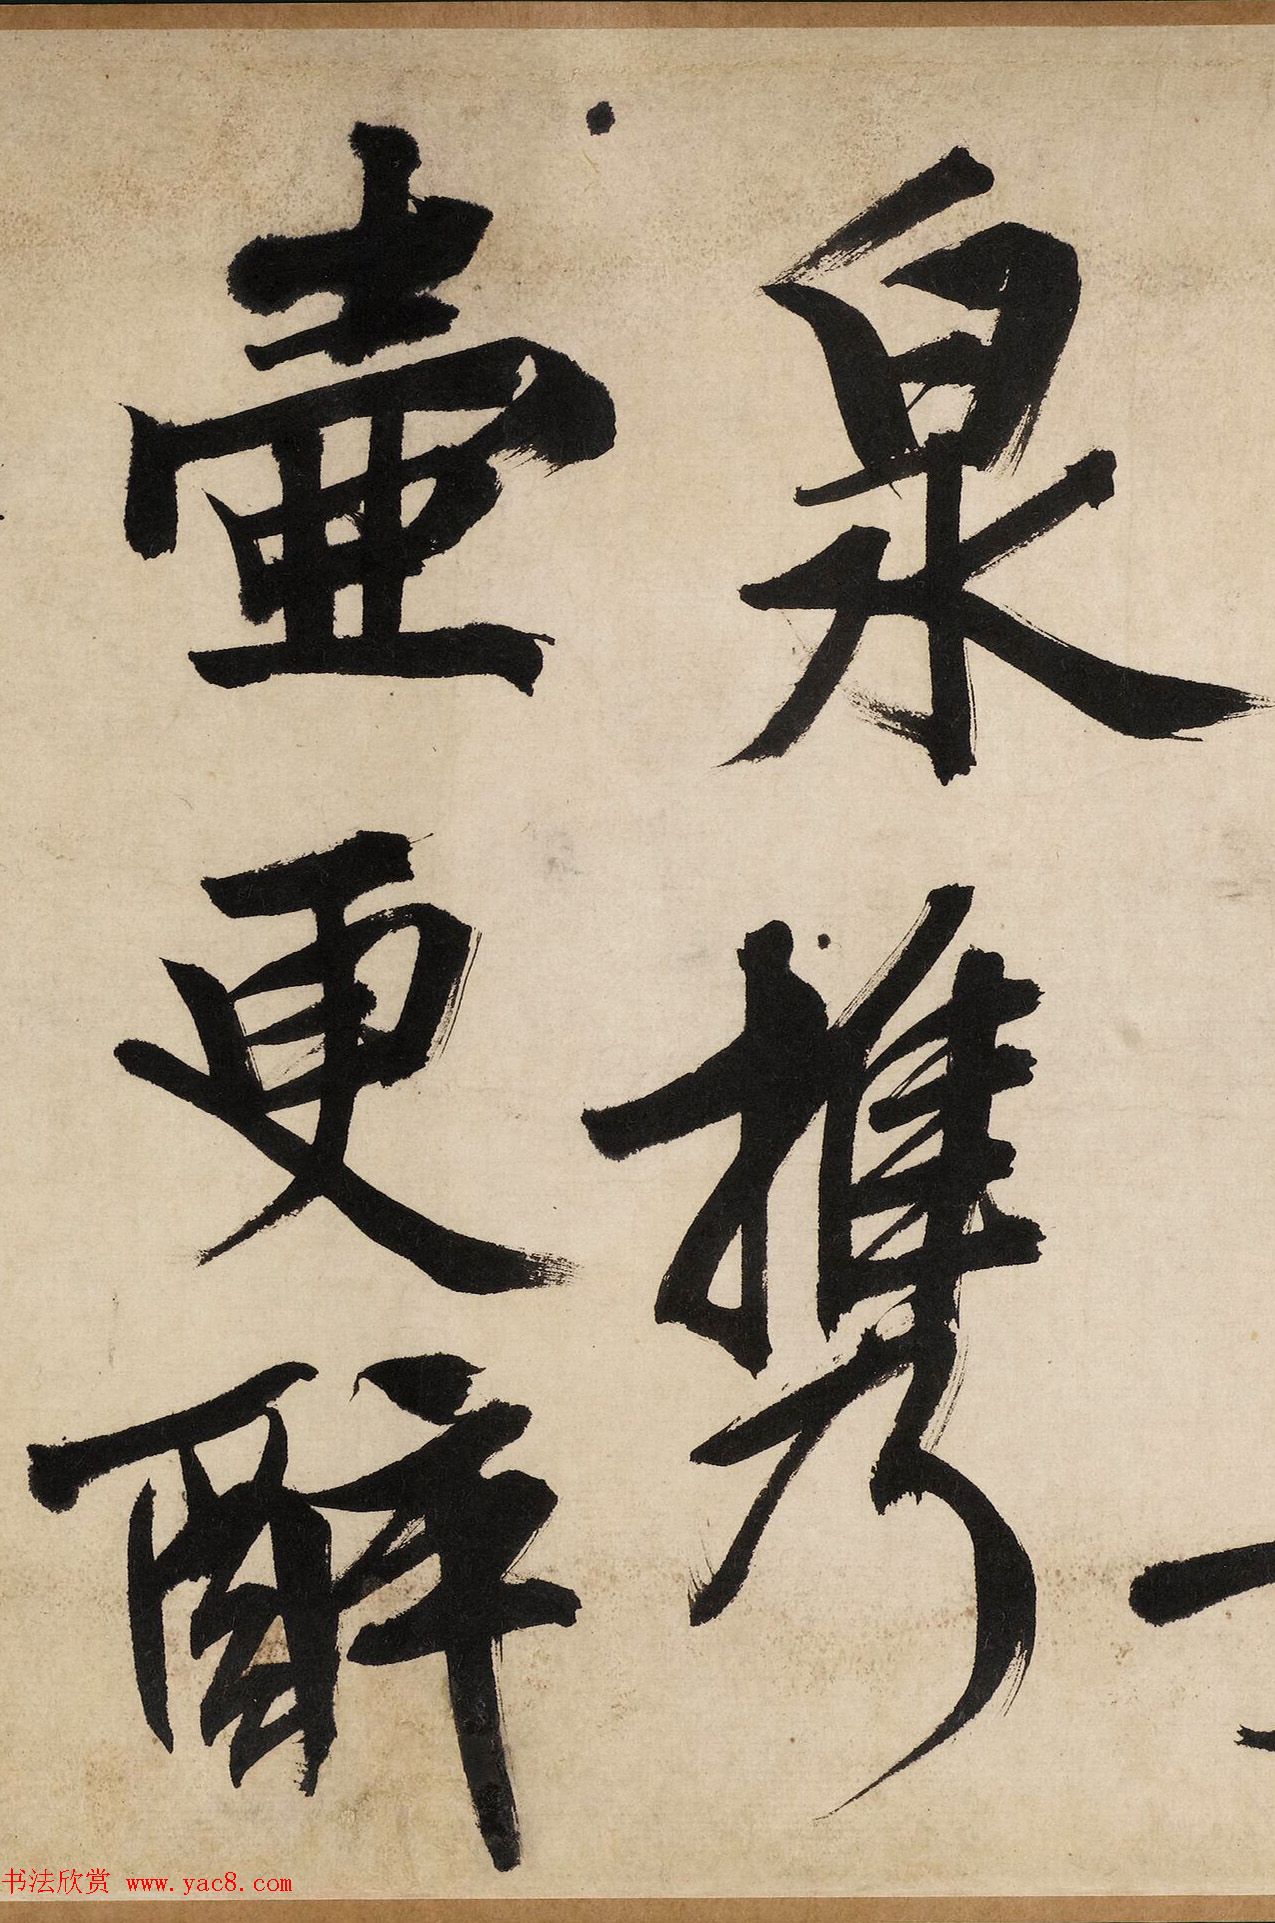 泉攜
壺更醉
书法欣赏 www.yac8.com